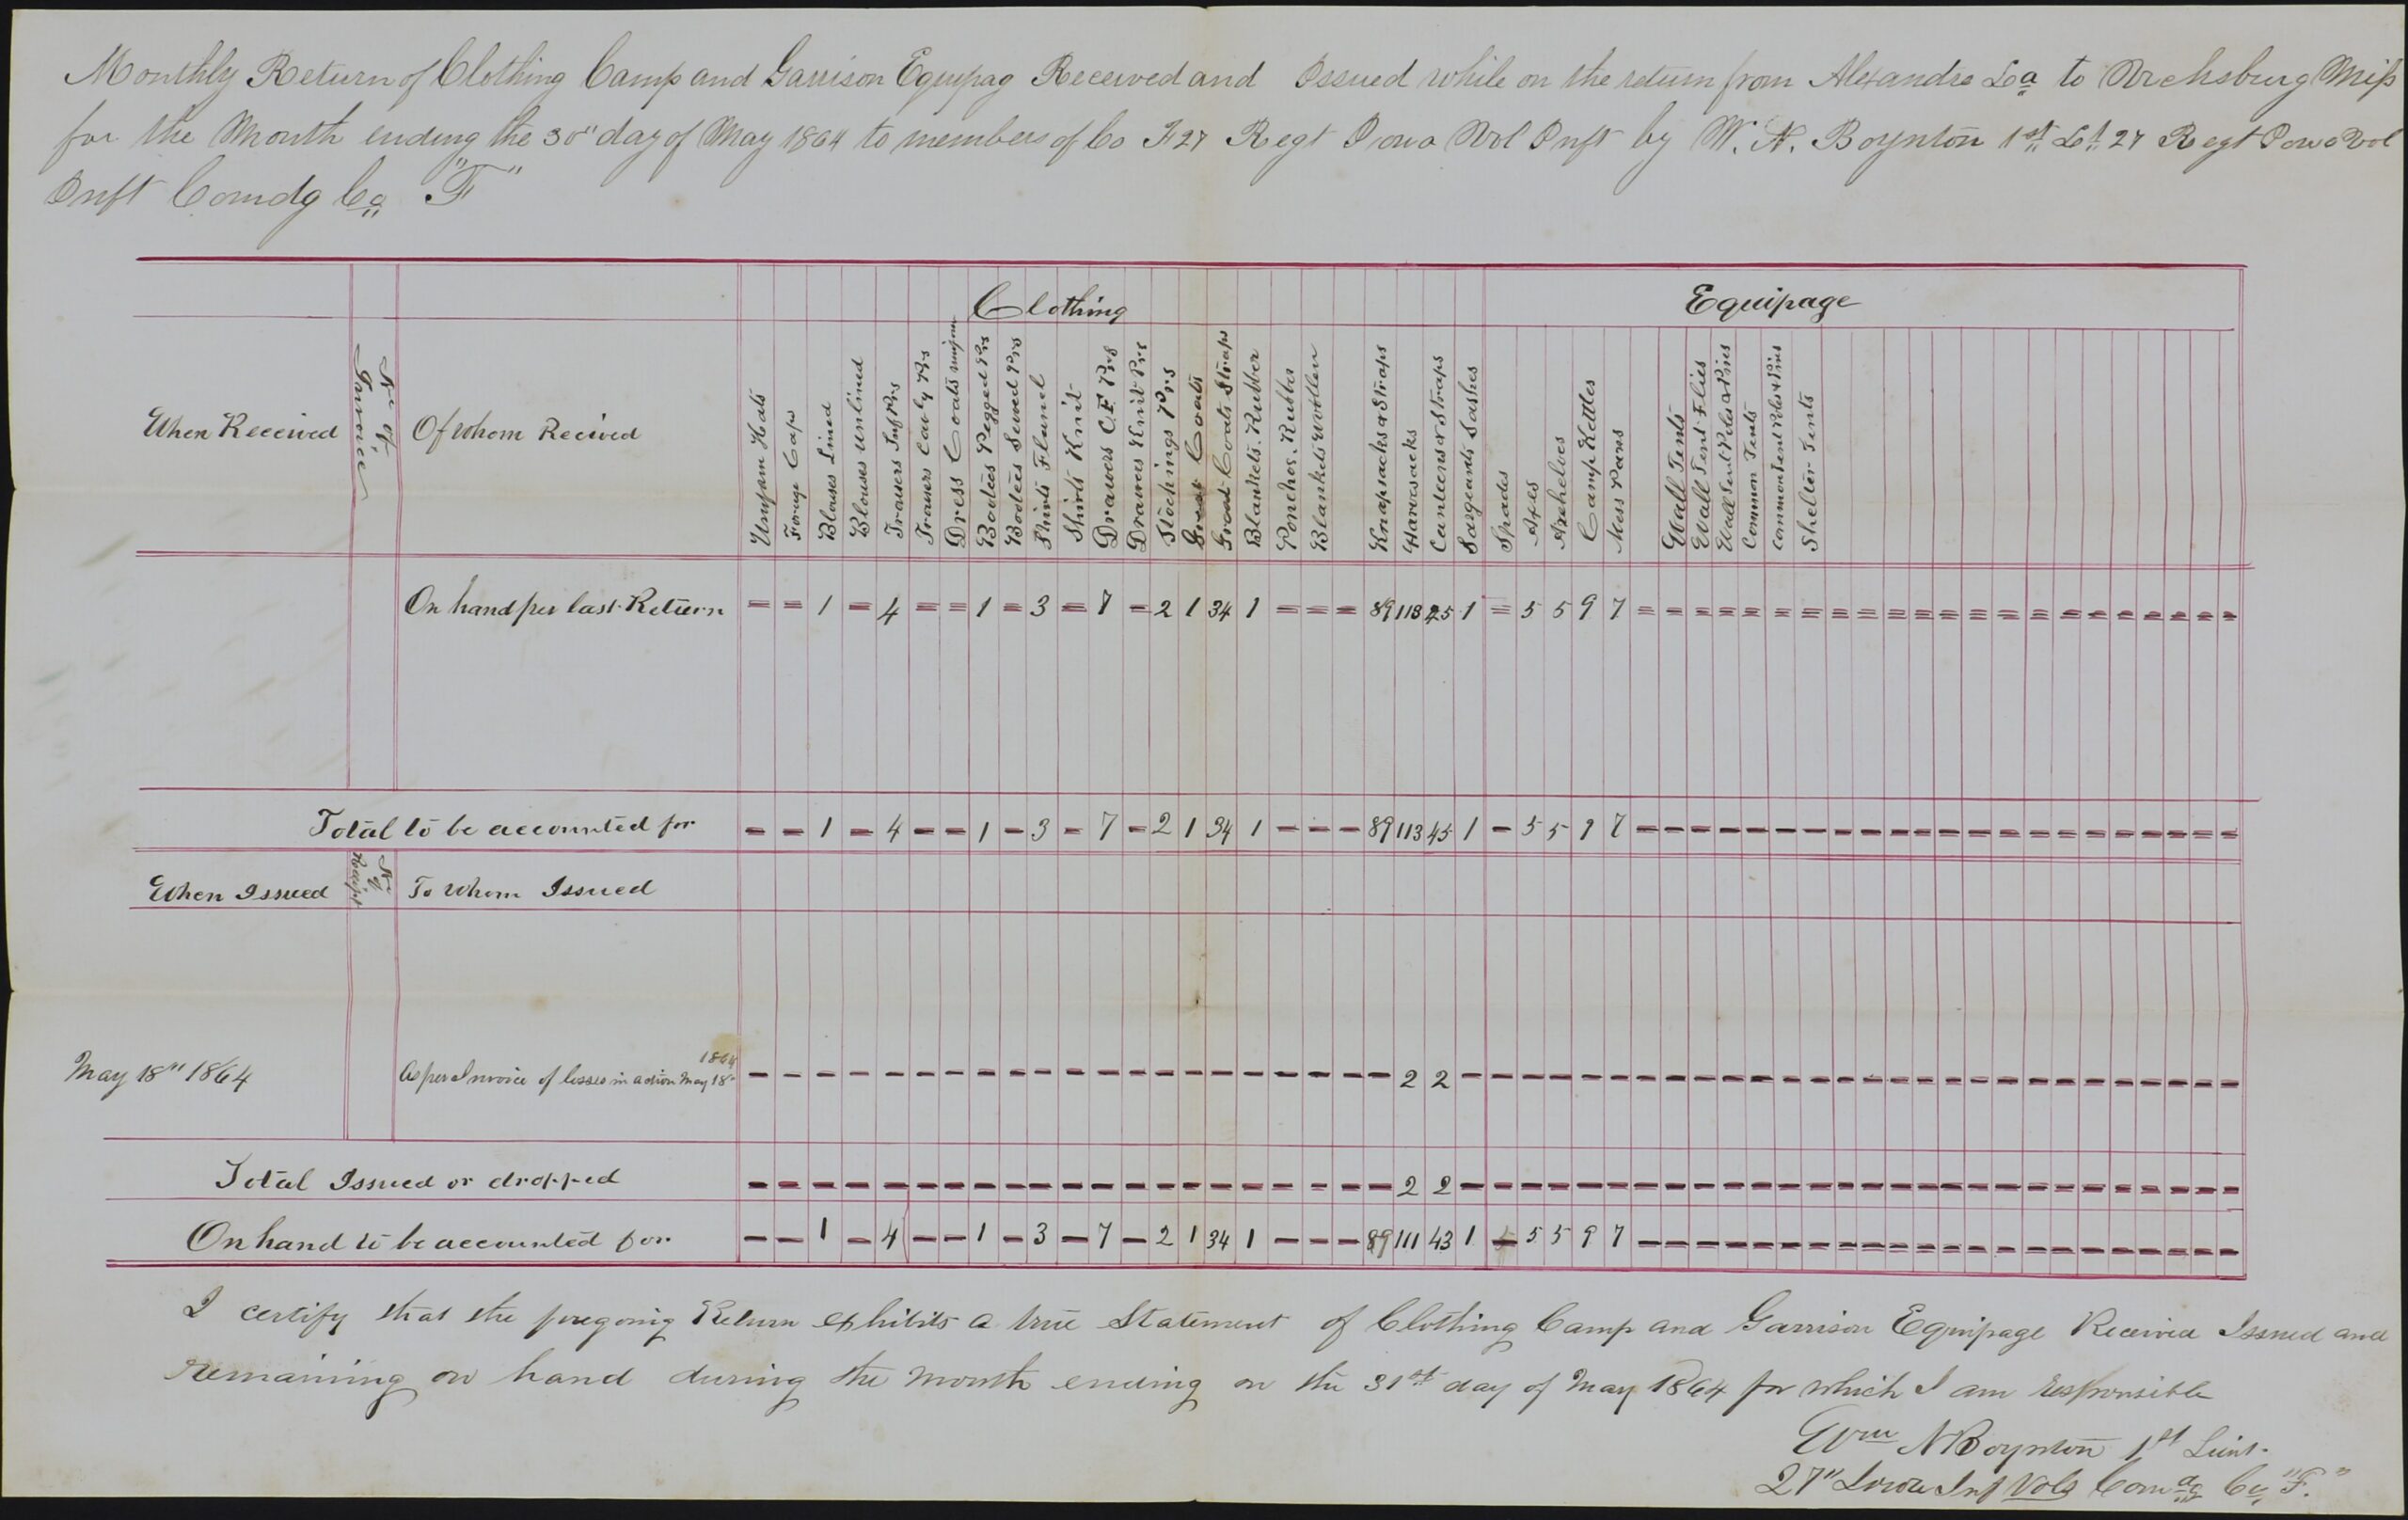 Monthly Return of Clothing Camp and Garrison Equipag Received and Issued while on the return from Alexandra La to Vicksburg Miss
for the Month ending the 30" day of May 1864 to members of Co F 27 Regt Iowa Vol Inft by W. N. Boynton 1st Lt 27 Regt Iowa Vol
Inft Comdg Co "F"
Clothing Equipage
When Received No of Invoice Of whom Recived
Uniform Hats
Forage Caps
Blouses Lined
Blouses unlined
Trowsers Inf Prs
Trowsers Cav'y Prs
Dress Coats
Bootees Pegged Prs
Bootees Sewed Prs
Shirts Flanel
Shirts Knit
Drawers C.F. Prs
Drawers Knit Prs
Stockings Prs
Great Coats
Great Coats Straps
Blankets. Rubber
Ponchos. Rubber
Blankets Woollen
Knapsacks & Straps
Haversacks
Canteens & Straps
Sargeants Sashes
Spades
Axes
Axehelves
Camp Kettles
Mess Pans
Wall Tents
Wall Tent Flies
Wall Tent Poles & Pins
Common Tents
Common Tent Poles & Pins
Shelter Tents
On hand per last Return = = 1 = 4 = = 1 = 3 = 7 = 2 1 34 1 = = = 89 113 45 1 = 5 5 9 7 = = = = = = = = = = = = = = = = = = = = =
Total to be accounted for - - 1 - 4 - - 1 - 3 - 7 - 2 1 34 1 - - - 89 113 45 1 - 5 5 9 7 - - - - - - - - - - - - - - - - - - - - -
When Issued No of Receipt To Whom Issued
May 18" 1864 As per Invoice of losses in action May 18" 1864 - - - - - - - - - - - - - - - - - - - - - 2 2 - - - - - - - - - - - - - - - - - - - - - - - - - - -
Total Issued or dropped - - - - - - - - - - - - - - - - - - - - - 2 2 - - - - - - - - - - - - - - - - - - - - - - - - - - -
On hand to be accounted for - - 1 - 4 - - 1 - 3 - 7 - 2 1 34 1 - - - 89 111 43 1 - 5 5 9 7 - - - - - - - - - - - - - - - - - - - - -
I certify that the foregoing Return exhibits a true Statement of Clothing Camp and Garrison Equipage Received Issued and
remaining on hand during the month ending on the 31st day of May 1864 for which I am responsible
Wm N Boynton 1st Lieut.
27" Iowa Inf Vols Comdg Co "F."